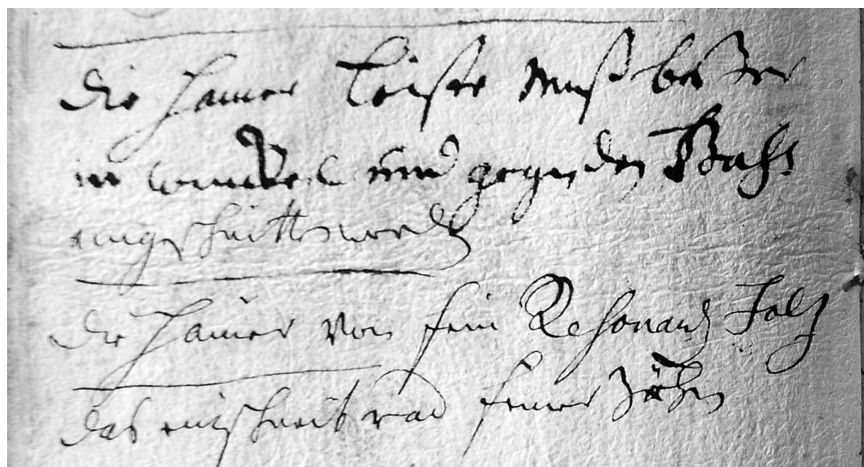 die Hamer Leiste Muß besser
in winckel und gegen den Bahs
eingeschnitten werden
die Hamer von fein Resonantz Holtz
das rad feiner Zähn